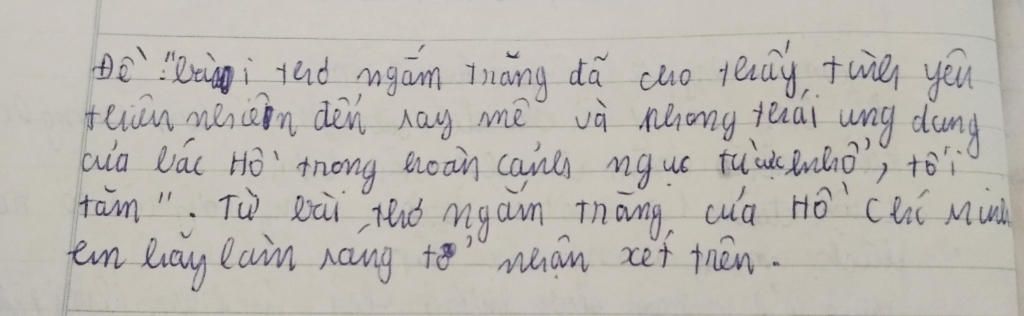 Đề: "bài thơ ngắm trăng đã cho thấy tình yêu
thiên nhiên đến say mê và phong thái ung dung
của Bác Hồ trong hoàn cảnh ngục tù cực khổ, tối
tăm". Từ bài thơ ngắm trăng của Hồ Chí Minh
em hãy làm sáng tỏ nhận xét trên.